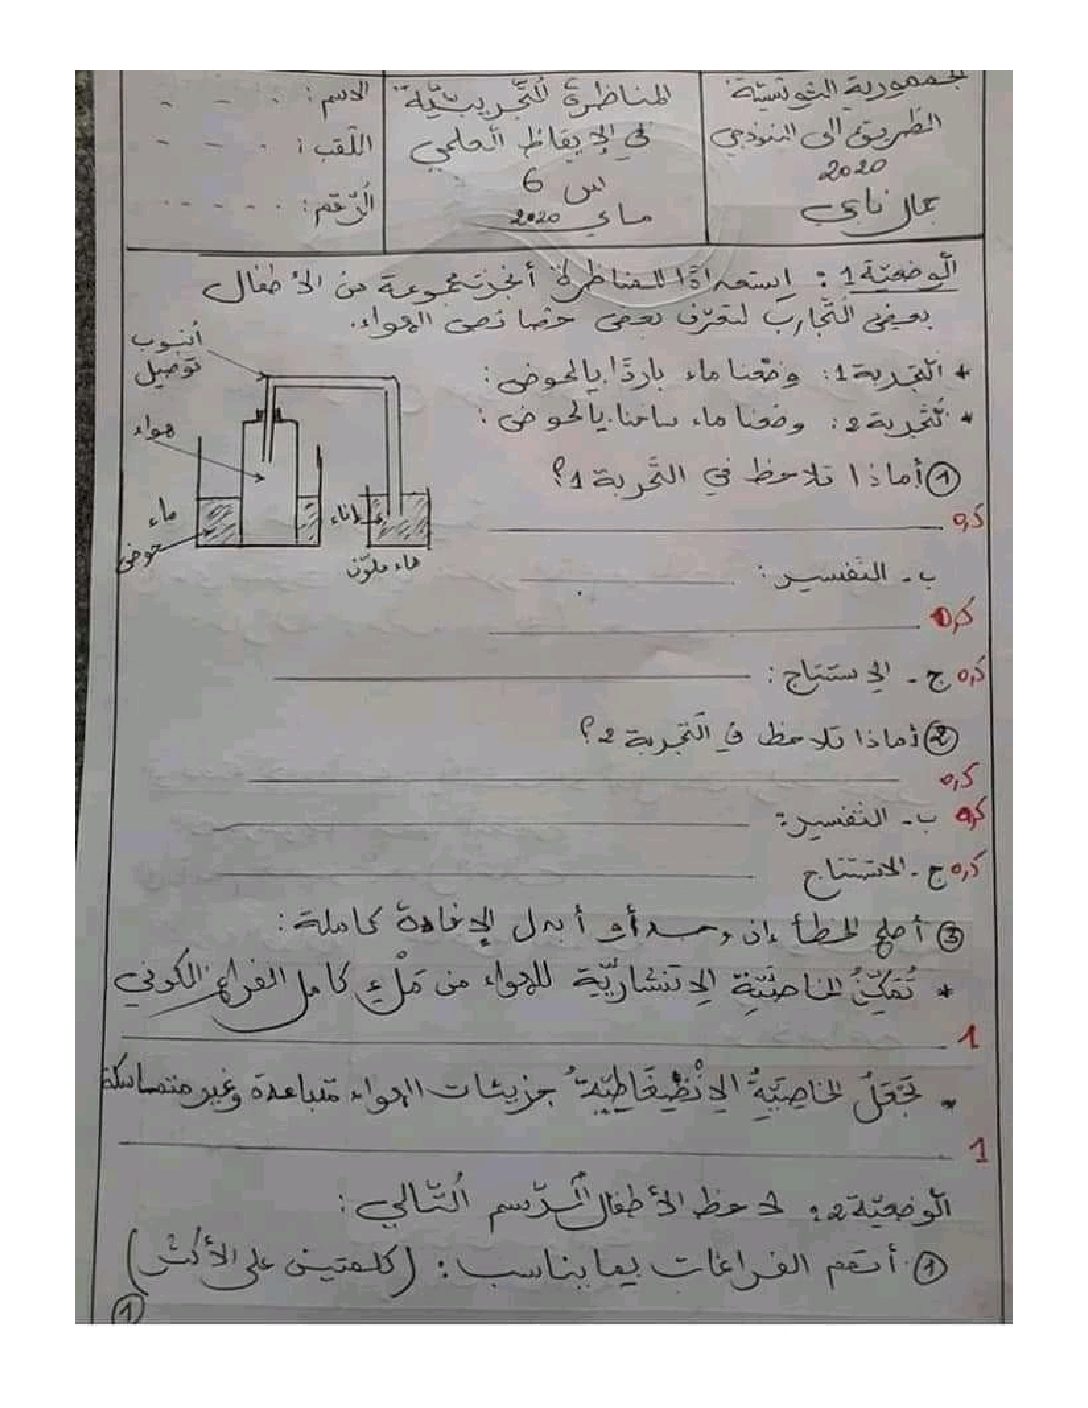 الجمهورية التونسية
الطريق الى النموذجي
2020
جمال نابي
المناظرة التجريبيّة
في الإيقاظ العلمي
س 6
ماي 2020
الاسم: - - -
اللّقب: - - -
الرّقم: . . . . .
الوضعيّة 1: استعدادًا للمناظرة أنجزت مجموعة من الأطفال
بعض التّجارب لتعرّف بعض خصائص الهواء.
* التّجربة 1: وضعنا ماء باردًا بالحوض:
* تّجربة 2: وضعنا ماء ساخنا بالحوض:
أنبوب
توصيل
هواء
ماء
حوض
إناء
ماء ملوّن
① أ ماذا تلاحظ في التّجربة 1؟
0,5
ب - التّفسير:
0,5
0,5 ج - الإستنتاج:
② أ ماذا تلاحظ في التّجربة 2؟
0,5
0,5 ب - التّفسير:
0,5 ج - الاستنتاج
③ أصلح الخطأ إن وجد أو أبدل الإفادة كاملة:
* تُمَكِّنُ الخاصّيّة الإنتشاريّة للهواء من مَلْءِ كامل الفراغ الكوني
1
* تَجْعَلُ الخاصِيّةُ الإِنْضِغَاطِيّةُ جزيئات الهواء متباعدة وغير متماسكة
1
الوضعيّة 2: لاحظ الأطفال الرّسم التّالي:
① أتمّم الفراغات بما يناسب: (كلمتين على الأكثر)
①